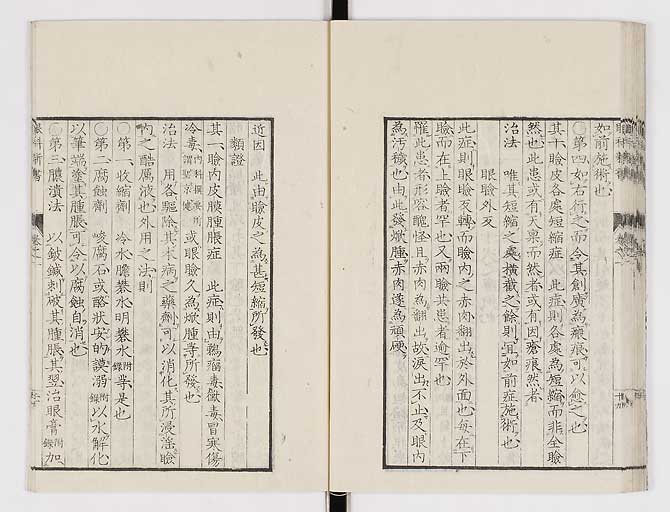 如前施術也
○第四如右行之而令其創廣為瘢痕可以愈之也
其十瞼皮各處短縮症 此症則各處為短縮而非全瞼
然也此患或有天稟而然者或有因瘡痕然者
治法 唯其短縮之處橫截之餘則宜如前症施術也
眼瞼外反
此症則眼瞼反轉而瞼內之赤肉翻出於外面也每在下
瞼而在上瞼者罕也又兩瞼共患者逾罕也
罹此患者形容醜怪且赤肉為翻出故淚出不止及眼內
為汚穢也由此發焮腫赤肉遂為頑硬
近因 此由瞼皮之為甚短縮所發也
類證
其一瞼內皮膜腫脹症 此症則由鷞瘤毒黴毒冒寒傷
冷毒 或眼瞼久為焮腫等所發也
治法 用各驅除其本病之藥劑可以消化其所浸淫瞼
內之酷厲液也外用之法則
○第一收縮劑 冷水膽礬水明礬水附錄等是也
○第二腐蝕劑 峻腐石或酪狀安的謨溺附錄以水解化
以筆端塗其腫脹可令以腐蝕自消也
○第三膿潰法 以皺鍼刺破其腫脹其翌治眼膏附錄加
眼科新書
卷之一
十九